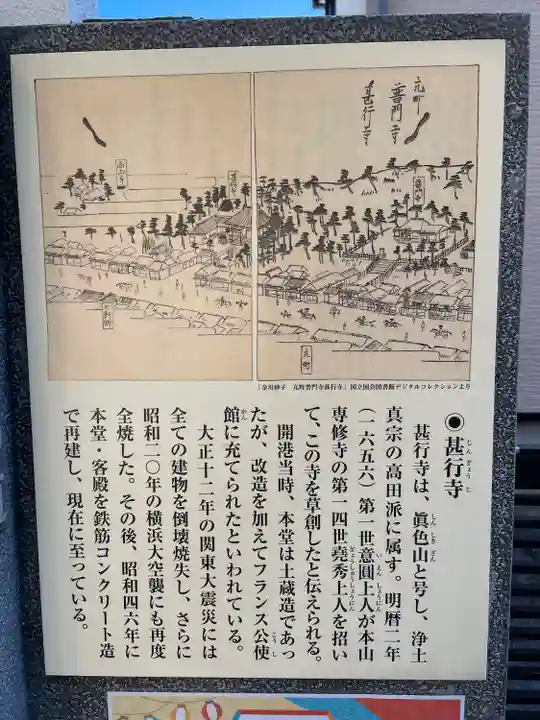 元町
普門寺
甚行寺
普門寺
甚行寺
元町
「金川砂子 元町普門寺甚行寺」国立国会図書館デジタルコレクションより
◉甚行寺
じんぎょうじ
甚行寺は、眞色山と号し、浄土
しんしきざん
真宗の高田派に属す。明暦二年
（一六五六）第一世意圓上人が本山
いえんしょうにん
専修寺の第一四世堯秀上人を招い
ぎょうしゅうしょうにん
て、この寺を草創したと伝えられる。
開港当時、本堂は土蔵造であっ
たが、改造を加えてフランス公使
こうし
館に充てられたといわれている。
かん
大正十二年の関東大震災には
全ての建物を倒壊焼失し、さらに
昭和二〇年の横浜大空襲にも再度
全焼した。その後、昭和四六年に
本堂・客殿を鉄筋コンクリート造
で再建し、現在に至っている。